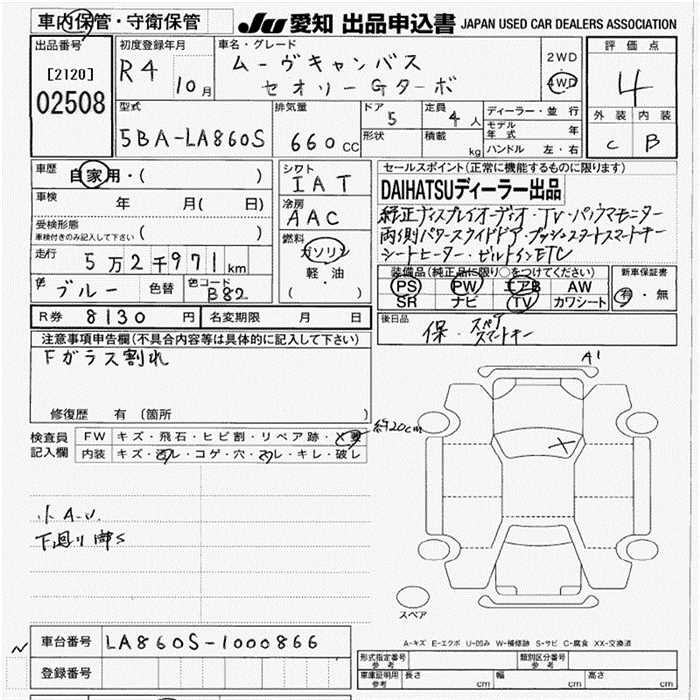 車内保管・守衛保管
JU 愛知 出品申込書 JAPAN USED CAR DEALERS ASSOCIATION
出品番号
[2120]
02508
初度登録年月
R4 10月
車名・グレード
ムーヴキャンバス
セオリーGターボ
2WD
4WD
評価点
4
外装 内装
C B
型式
5BA-LA860S
排気量
660 CC
ドア
5
定員
4人
形状
積載
kg
ディーラー・並行
モデル年式 年
ハンドル 左・右
車歴
自家用・( )
車検
年 月( 日)
受検形態
車検付きのみ記入して下さい ( )
走行
5万2千971km
色
ブルー
色替
色コード
B82
シフト
IAT
冷房
AAC
燃料
ガソリン
軽油
( )
セールスポイント(正常に機能するものに限ります)
DAIHATSUディーラー出品
純正ディスプレイオーディオ・TV・パノラマモニター
両側パワースライドドア・プッシュスタートスマートキー
シートヒーター・ビルトインETC
装備品(純正品に限り○をつけてください)
PS PW エアB AW
SR ナビ TV カワシート
新車保証書
有・無
R券 8130円
名変期限 月 日
後日品
保・スペア
スマートキー
注意事項申告欄(不具合内容等は具体的に記入して下さい)
Fガラス割れ
修復歴 有(箇所 )
検査員
記入欄
FW キズ・飛石・ヒビ割・リペア跡・X要
内装 キズ・汚レ・コゲ・穴・スレ・キレ・破レ
約20cm
A1
X
小A.U.
下廻り錆S
スペア
A-キズ E-エクボ U-凹み W-補修跡 S-サビ C-腐食 XX-交換済
車台番号 LA860S-1000866
登録番号
形式指定番号
参考
類別区分番号
参考
車庫証明用
参考
長さ cm 幅 cm 高さ cm